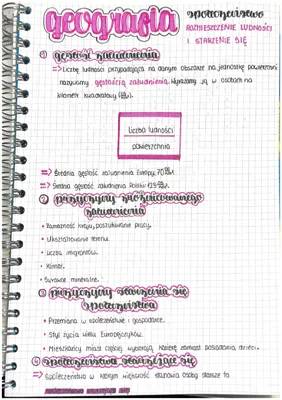 geografia
społeczeństwo
ROZMIESZCZENIE LUDNOŚCI
I STARZENIE SIĘ
① gęstość zaludnienia
=> Liczbę ludności przypadającą na danym obszarze na jednostkę powierzchni
nazywamy gęstością zaludnienia. Wyrażamy ją w osobach na
kilometr kwadratowy
liczba ludności
powierzchnia
=> Średnia gęstość zaludnienia Europy: 70
=> Średnia gęstość zaludnienia Polski:
② przyczyny zróżnicowanego
zaludnienia
• Zamożność kraju, poszukiwanie pracy.
• Ukształtowanie terenu.
• Liczba imigrantów.
• Klimat.
• Surowce mineralne.
③ przyczyny starzenia się
społeczeństwa
• Przemiany w społeczeństwie i gospodarce.
• Styl życia wielu Europejczyków.
• Mieszkańcy miast częściej wybierają karierę zamiast posiadania dzieci.
④ społeczeństwo starzejące się
=> Społeczeństwo w którym większość stanowią osoby starsze to